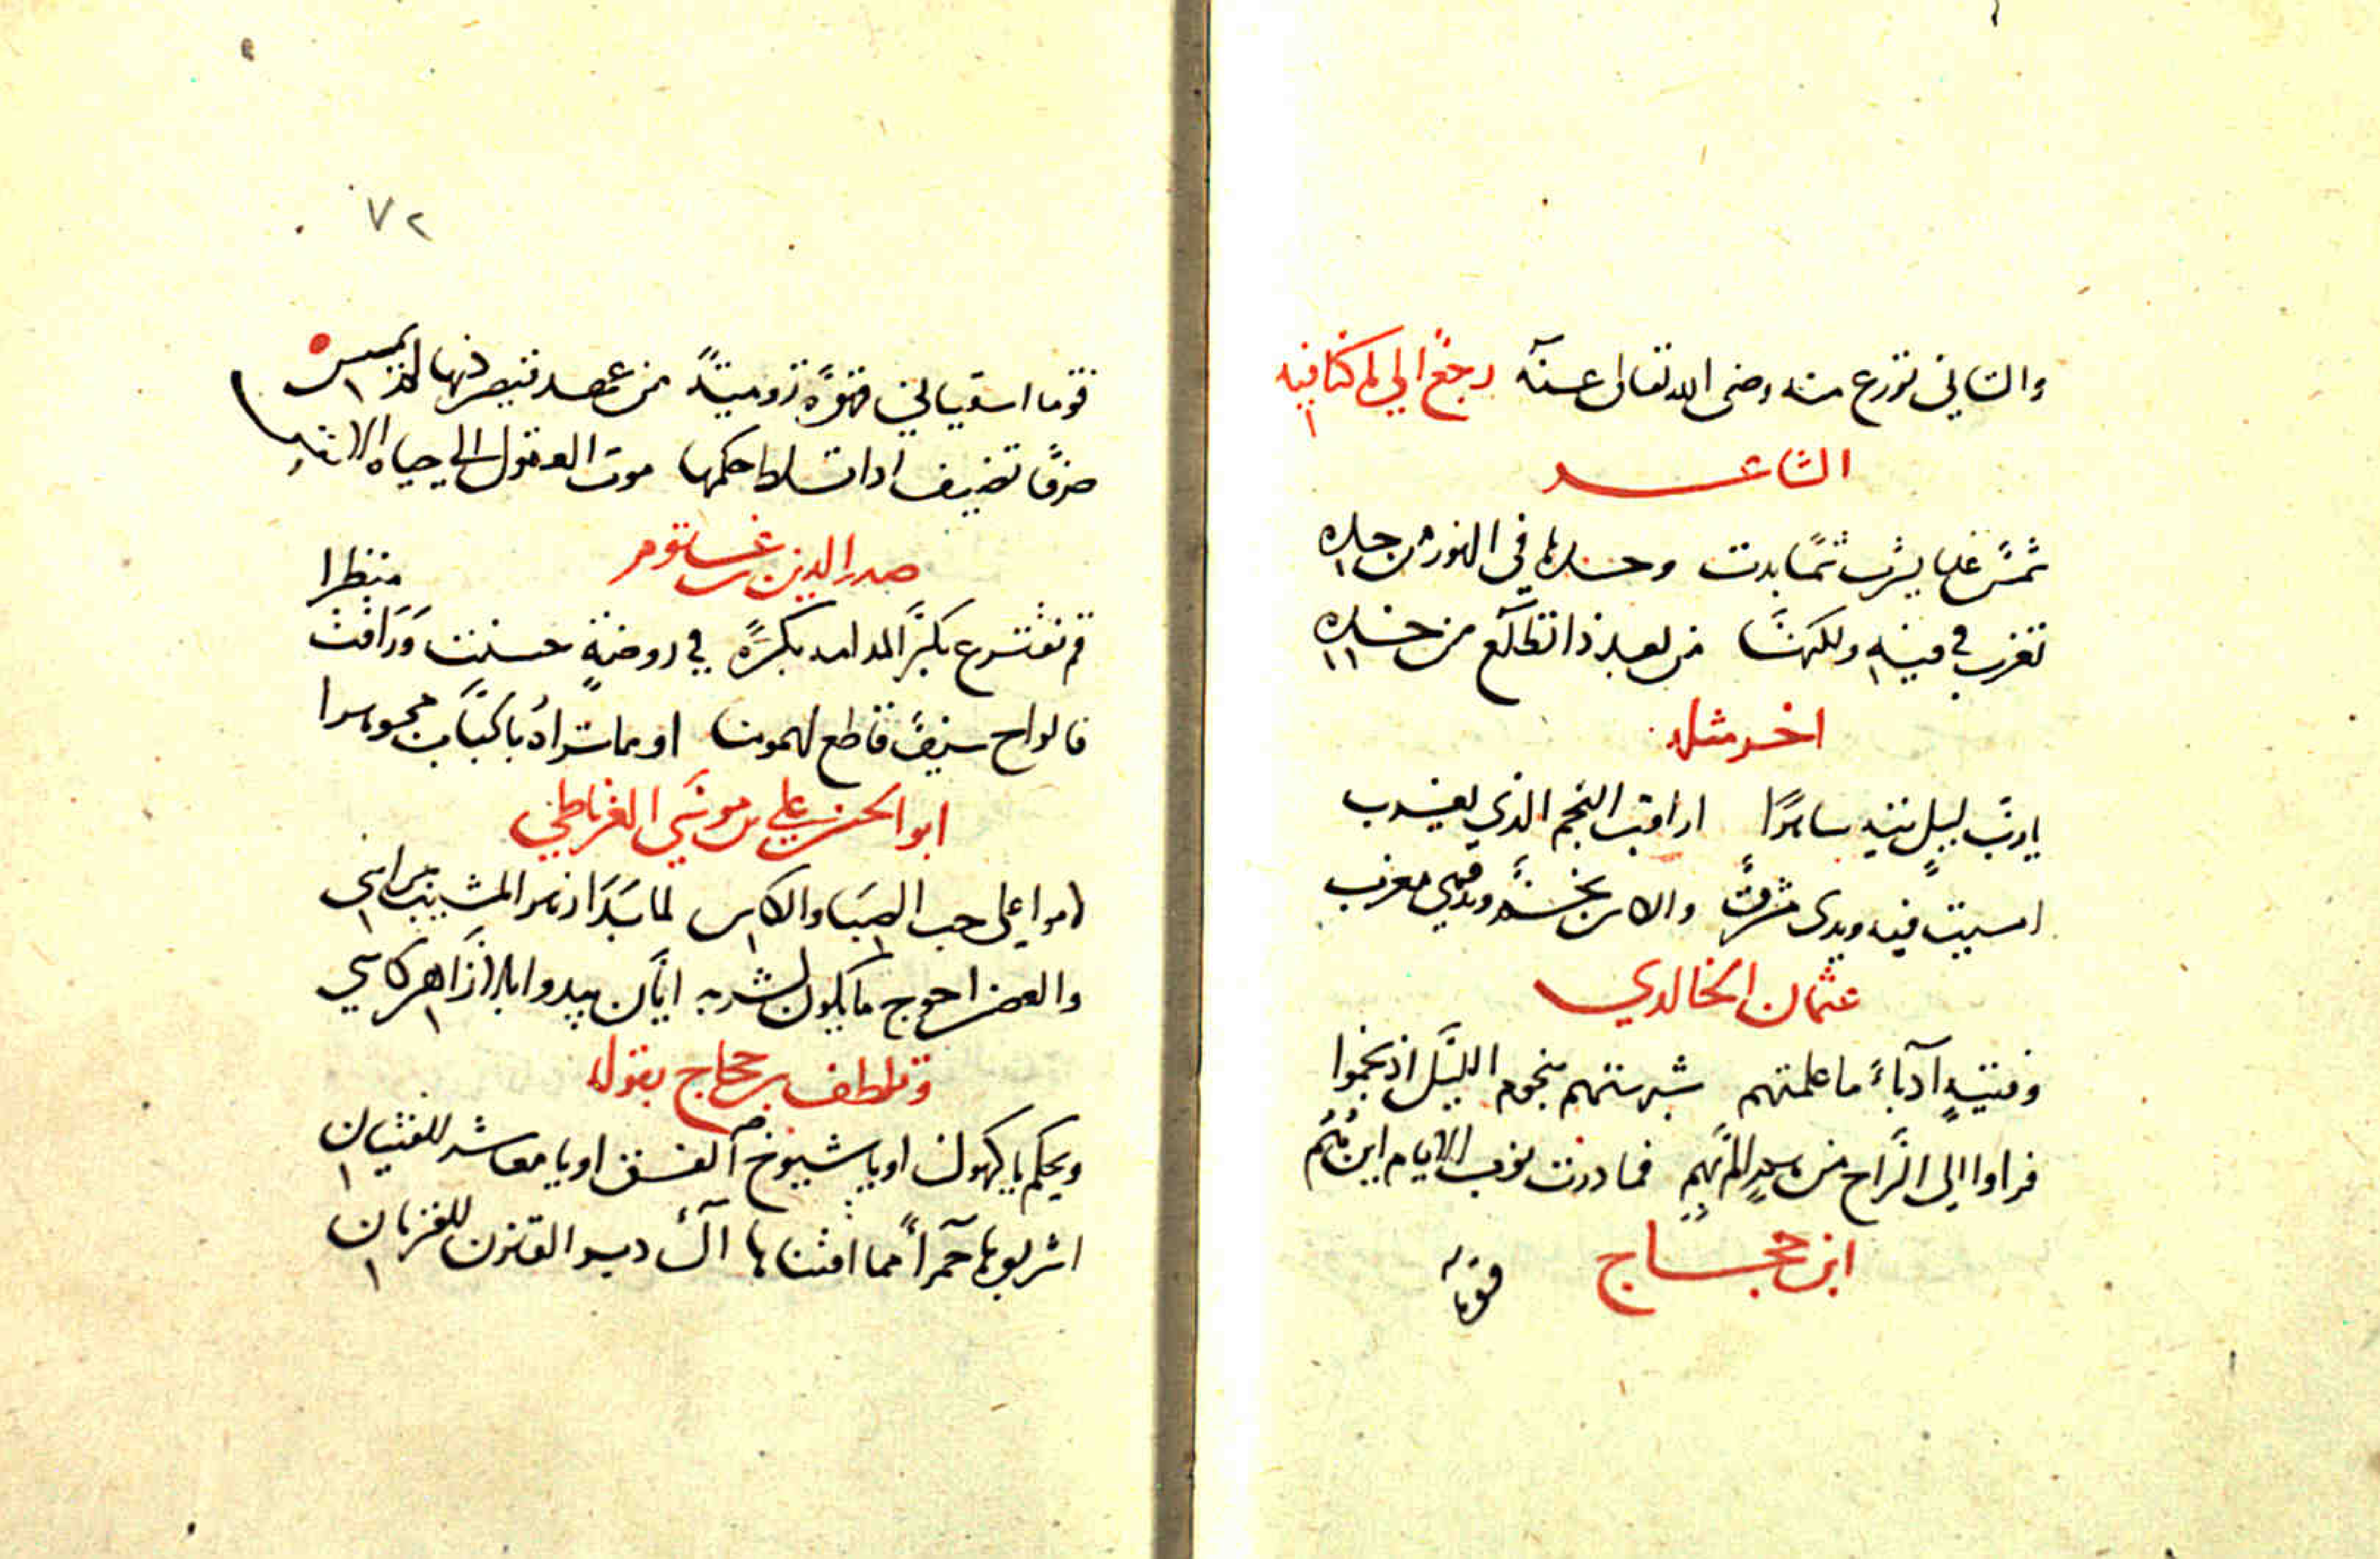 والثاني تورع منه رضى الله تعالى عنه رجع الي ما كنا فيه
الشاعر
شمس غدا يشرب شمسا بدت وحدها في النور من حده
تغرب في فيه ولكنها من بعد ذا تطلع من خده
اخر مثله
يا رب ليل بته ساهرا اراقب النجم الذي يغرب
امسيت فيه ويدي مشرق والكاس نجم وفمي مغرب
عثمان الخالدي
وفتية ادباء ما علمتهم شبهتهم بنجوم الليل اذ نجموا
فراوا الي الراح من هم فما درت نوب الايام اين هم
ابن حجاج
قوما
٧٢
قوما اسقياني قهوة رومية من عهد قيصر دنها لم يمسس
صرفا تضيف اذا تسلط حكمها موت العقول الي حياة الانفس
صدر الدين
قم نفترع بكر المدامة بكرة في روضة حسنت وراقت منظرا
فالراح سيف قاطع لهمومنا او ما تراه بالحباب مجوهرا
ابو الحسن علي بن موسي الغرناطي
لاموا علي حب الصبا والكاس لما بدا زهر المشيب براسي
والغصن احوج ما يكون لشربه ايان يبدوا بالازاهر كاسي
وتلطف بن حجاج بقوله
ويحكم يا كهول او يا شيوخ الفسق او يا معاشر الفتيان
اشربوها حمرا مما اقتناها آل دير القنون للقربان